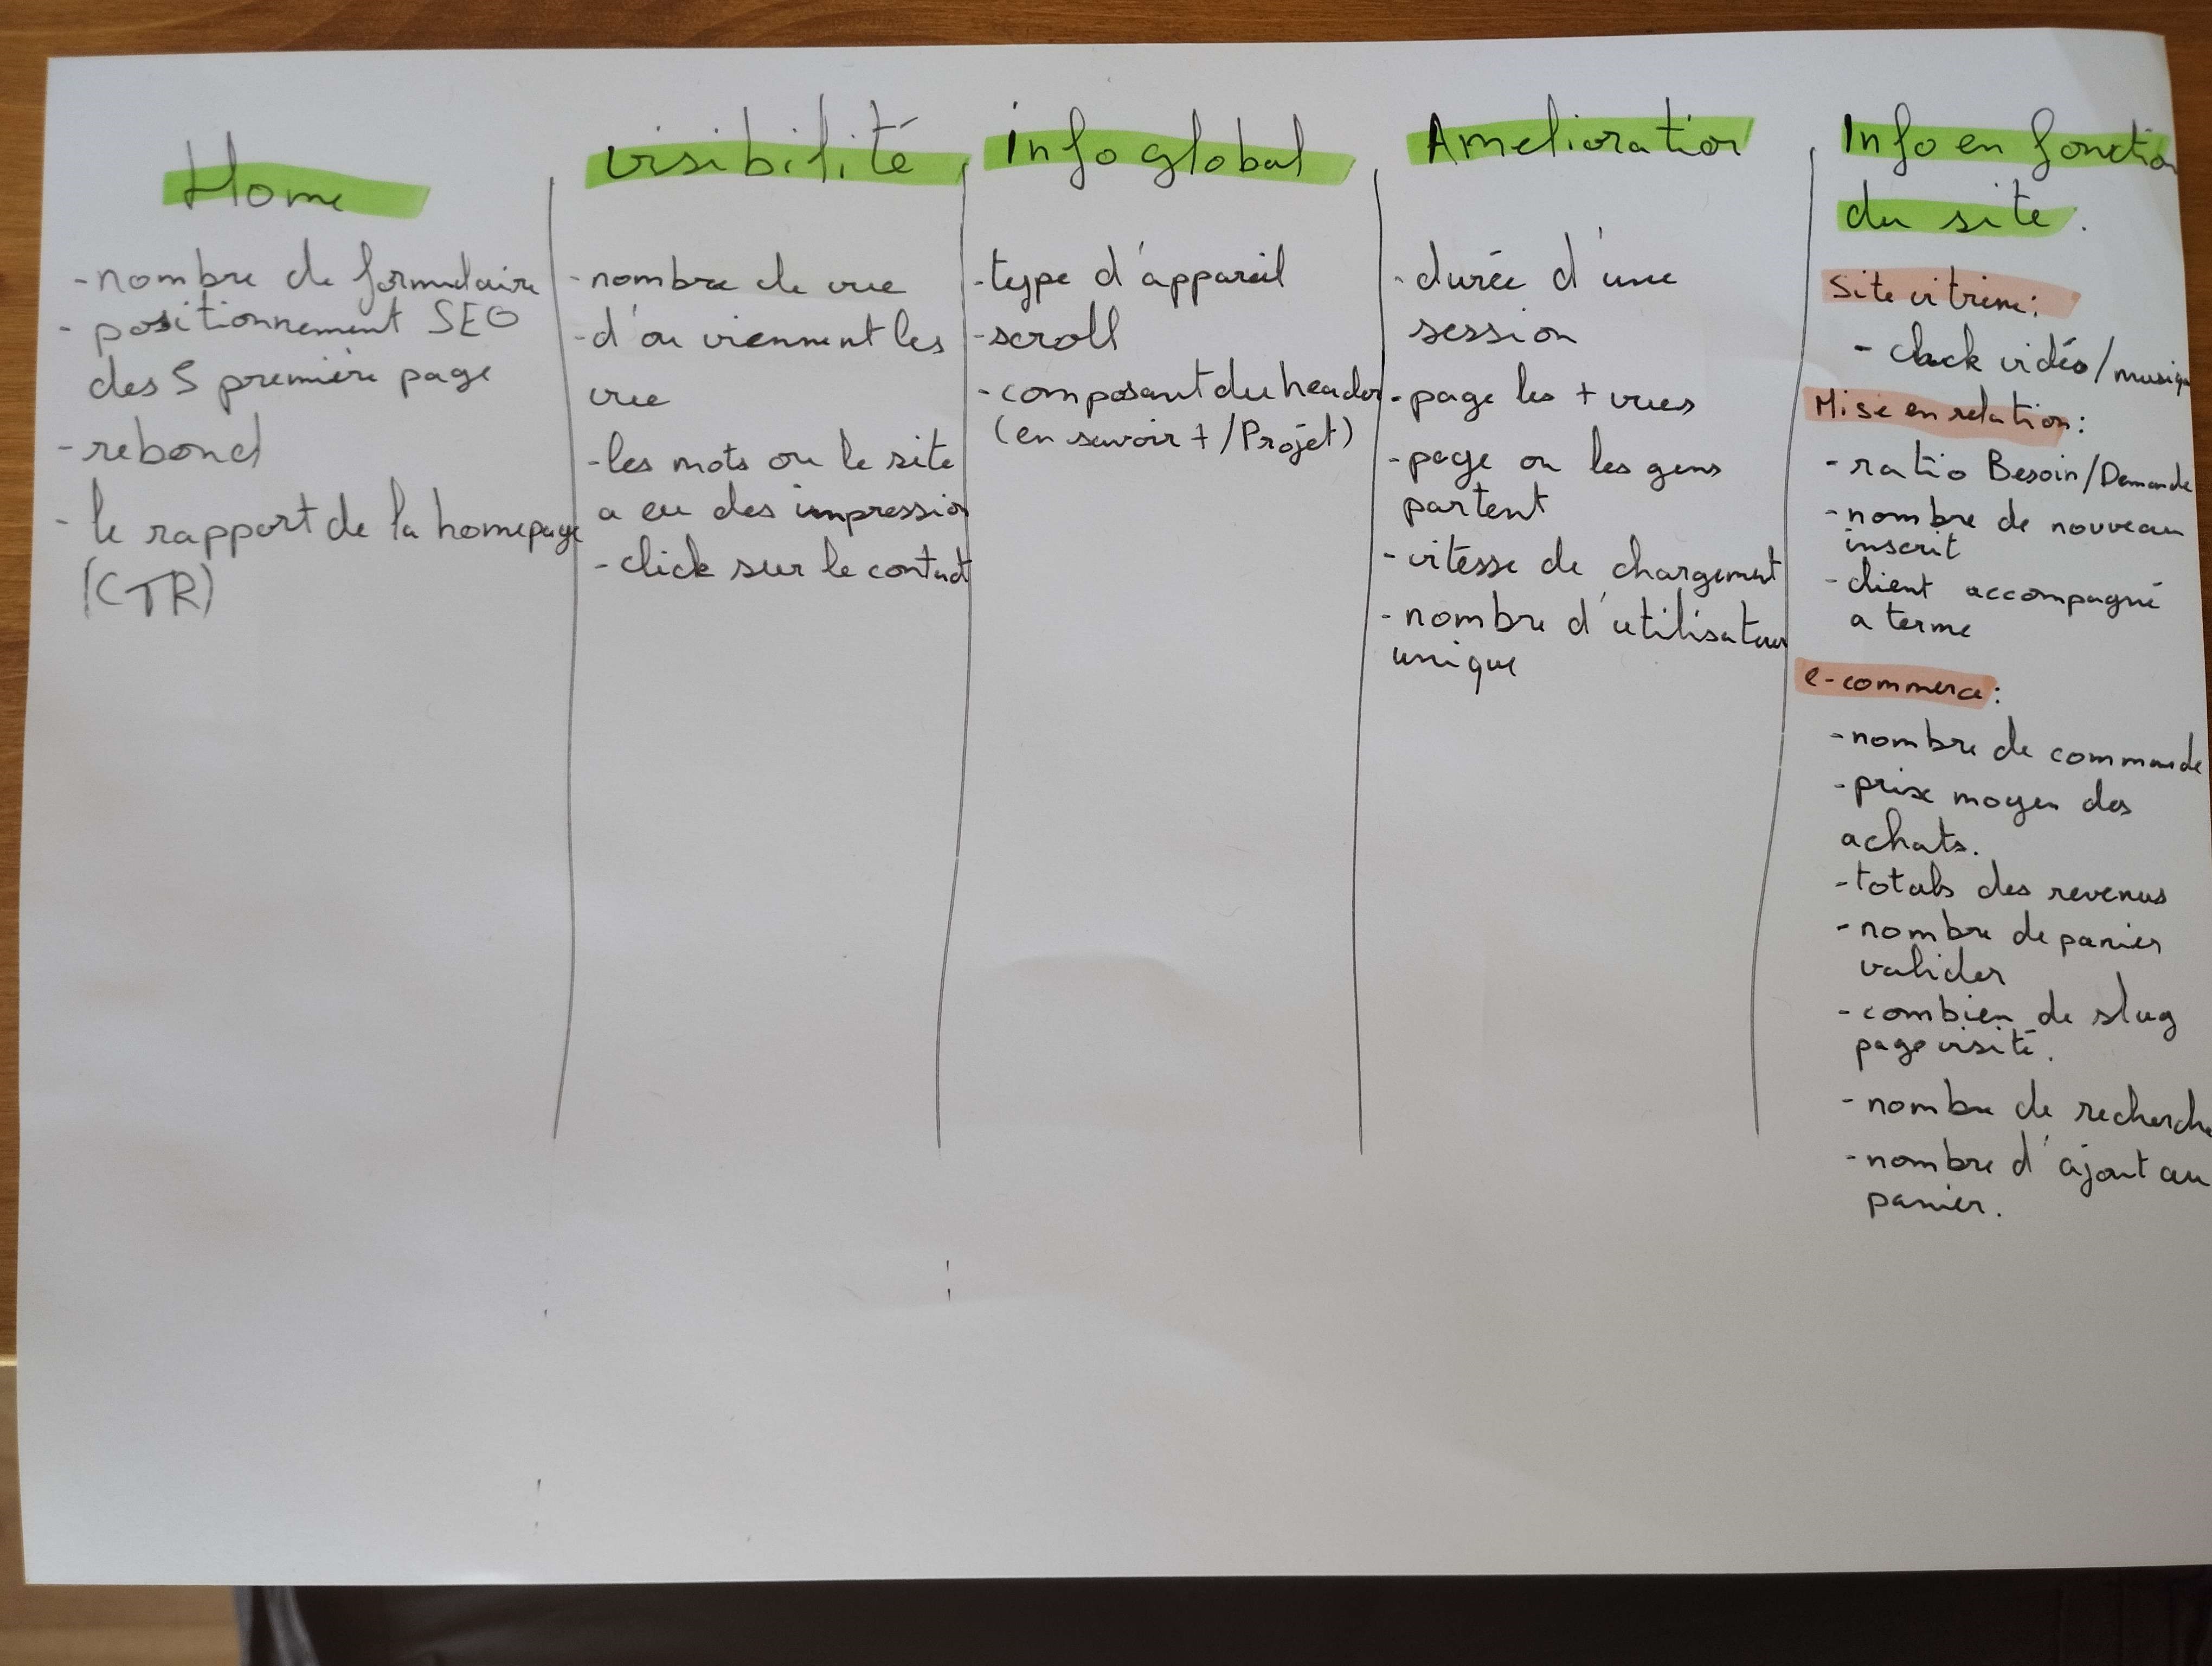 Home
-nombre de formulaire
- positionnement SEO
des 5 première page
-rebond
- le rapport de la homepage
(CTR)
visibilité
-nombre de vue
-d'ou viennent les
vue
-les mots ou le site
a eu des impression
-click sur le contact
info global
-type d'appareil
-scroll
-composant du header
(en savoir + / Projet)
Amelioration
-durée d'une
session
-page les + vues
-page ou les gens
partent
-vitesse de chargement
-nombre d'utilisateur
unique
Info en fonction
du site.
Site vitrine:
- click vidéo/musique
Mise en relation:
-ratio Besoin/Demande
-nombre de nouveau
inscrit
-client accompagné
a terme
e-commerce:
-nombre de commande
-prix moyen des
achats.
-totals des revenus
-nombre de panier
valider
-combien de slug
page visité.
-nombre de recherche
-nombre d'ajout au
panier.